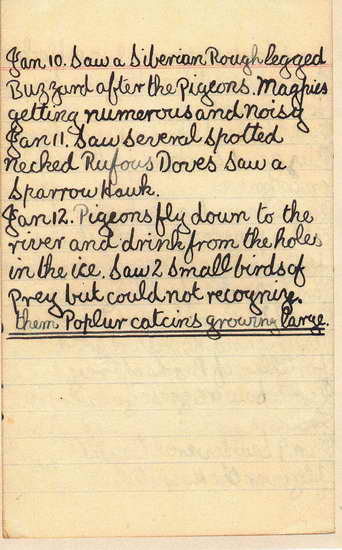 Jan 10. Saw a Siberian Rough legged
Buzzard after the Pigeons. Magpies
getting numerous and noisy
Jan 11. Saw several spotted
necked Rufous Doves Saw a
Sparrow Hawk.
Jan 12. Pigeons fly down to the
river and drink from the holes
in the ice. Saw 2 small birds of
prey but could not recognize
them Poplur catcins growing large.